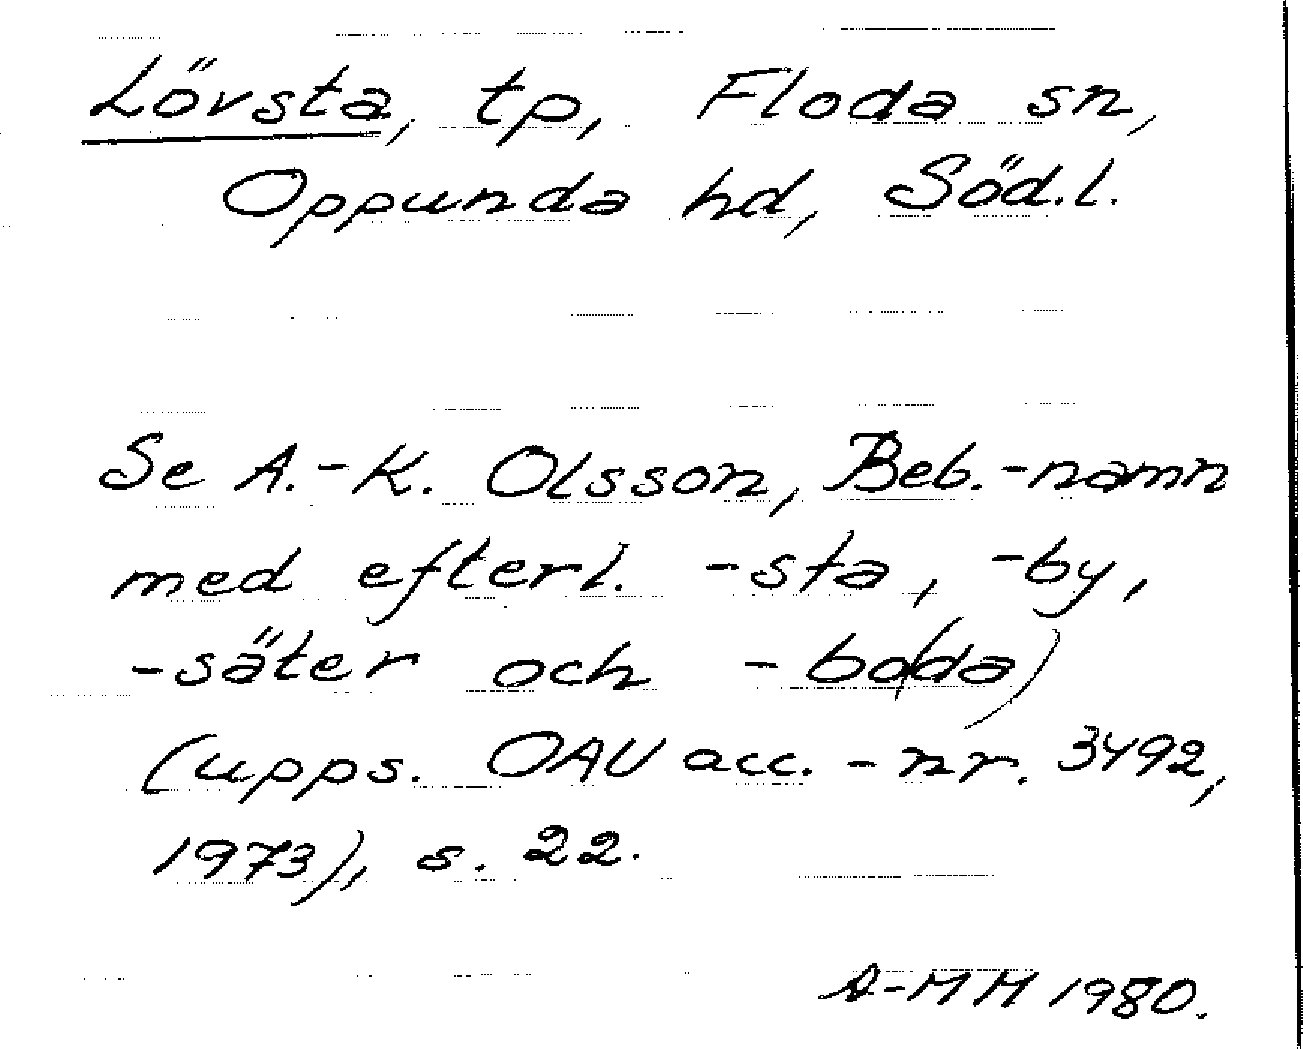 Lövsta, tp, Floda sn,
Oppunda hd, Söd.l.
Se A.-K. Olsson, Beb.-namn
med efterl. -sta, -by,
-säter och -bo(da)
(upps. OAU acc.-nr. 3492,
1973), s. 22.
A-MH 1980.